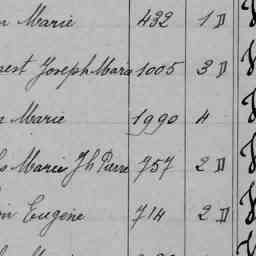 Marie 432 1 D
Joseph Marie 1005 3 D
Marie 1990 4
Marie Jh Pierre 757 2 D
Eugène 714 2 D